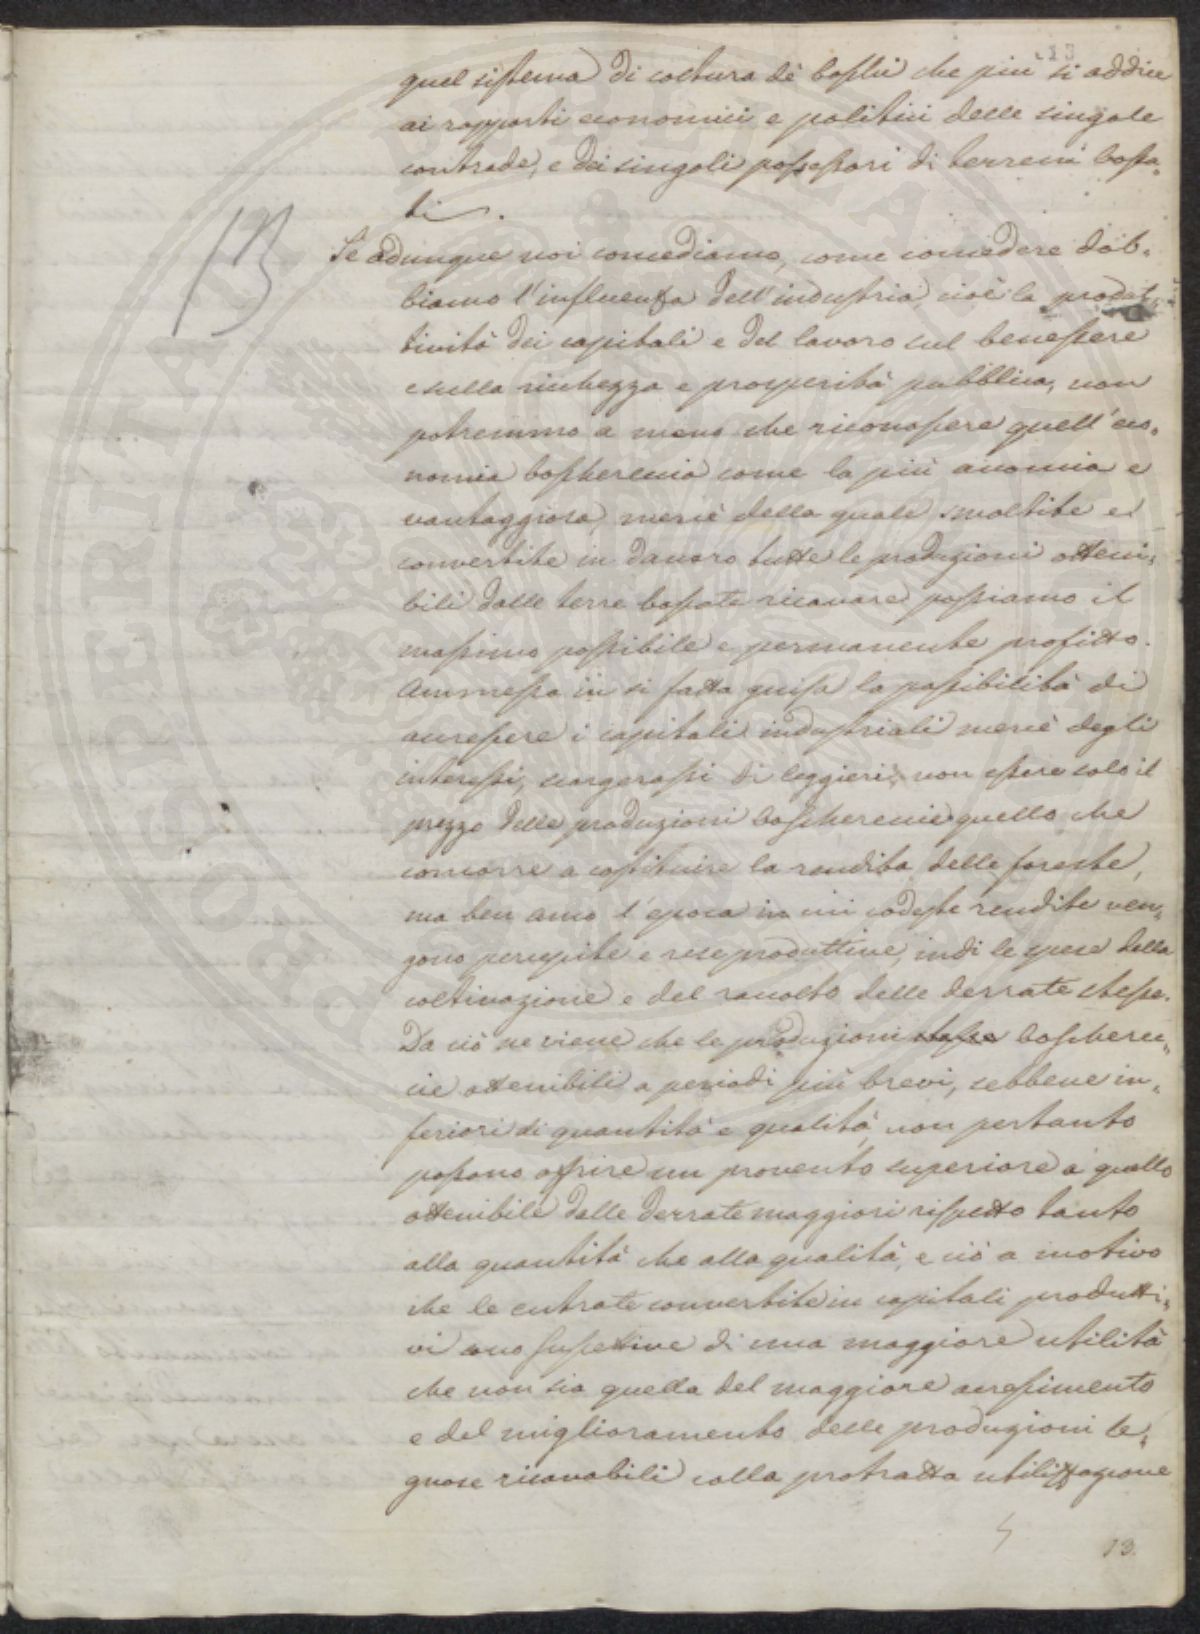 113
quel sistema di coltura de' boschi che più si addice
ai rapporti economici e politici delle singole
contrade, e dei singoli possessori di terreni bosca-
ti.
13
Se adunque noi concediamo, come concedere dob-
biamo l'influenza dell'industria, cioè la produt-
tività dei capitali e del lavoro sul benessere
e sulla ricchezza e prosperità pubblica, non
potremmo a meno che riconoscere quell'eco-
nomia boschereccia come la più acconcia e
vantaggiosa, mercè della quale smaltite e
convertite in danaro tutte le produzioni otteni-
bili dalle terre boscate ricavare possiamo il
massimo possibile e permanente profitto.
Ammessa in si fatta guisa la possibilità di
accrescere i capitali industriali mercè degli
interessi, scorgerassi di leggieri, non essere solo il
prezzo delle produzioni boschereccie quello che
concorre a costituire la rendita delle foreste,
ma ben anco l'epoca in cui codeste rendite ven-
gono percepite e rese produttive, indi le spese della
coltivazione e del raccolto delle derrate stesse.
Da ciò ne viene che le produzioni stesse boscherec-
cie ottenibili a periodi più brevi, sebbene in-
feriori di quantità e qualità, non pertanto
possono offrire un provento superiore a quello
ottenibile dalle derrate maggiori rispetto tanto
alla quantità che alla qualità, e ciò a motivo
che le entrate convertite in capitali produtti-
vi sono suscettive di una maggiore utilità
che non sia quella del maggiore accrescimento
e del miglioramento delle produzioni le-
gnose ricavabili colla protratta utilizzazione
13.
PROSPERITATI PUBLICAE